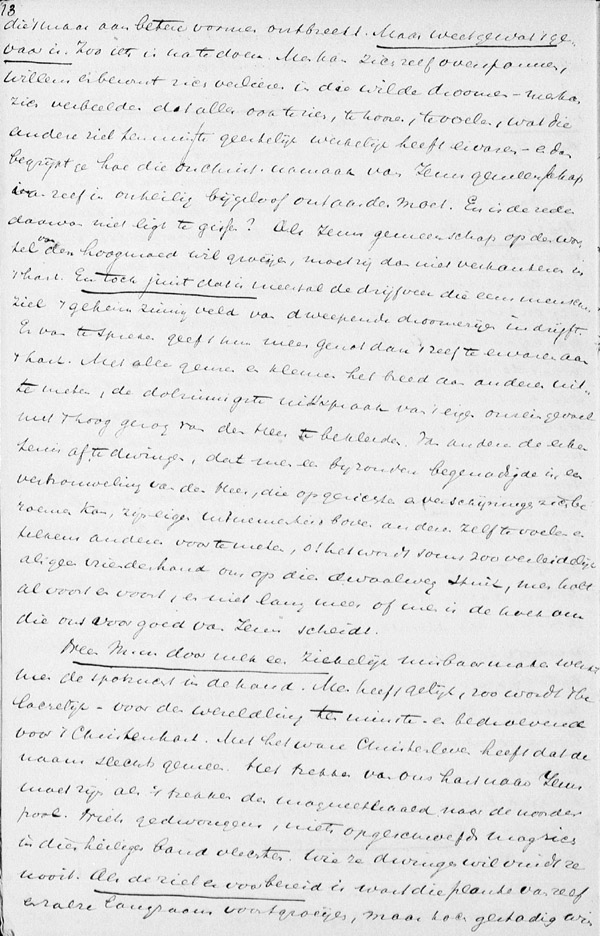 13
die 't maar aan betere vormen ontbreekt. Maar weet ge wat 't ge-
vaar is. Zoo iets is na te doen. Men kan zich zelf overspannen,
willens en bewust zich verliezen in die wilde droomen – men kan
zich verbeelden dat alles ook te zien, te hooren, te voelen, wat die
andere ziel ten minste geestelijk werkelijk heeft ervaren – en dan
begrijpt ge hoe die onchrist. namaak van Jezus gemeenschap
zelf in onheilig bijgeloof ontaarden moet. En is de reden
daarvan niet ligt te gissen? Als Jezus gemeenschap op den wor-
tel van den hoogmoed wil groeijen, moet zij dan niet verkankeren in
't hart. En toch juist dat is meestal de drijfveer die eens menschen
ziel 't geheimzinnig veld van dweepende droomerijen indrijft.
Er van te spreken geeft hun meer genot dan 't zelf te ervaren aan
't hart. Met alle geuren en kleuren het breed aan anderen uit-
te meten, de dolzinnigste uitspraak van 't eigen onrein gevoel
met 't hoog gezag van den Heer te bekleeden. Om anderen de erken-
tenis af te dwingen, dat men een bijzonder begenadigde is, een
vertrouweling van den Heer, die op gezichten en verschijningen zich be-
roemen kan, zijn eigen uitnemendheid boven anderen zelf te voelen en
telkens anderen voor te meten, o! het wordt soms zoo verleidelijk
als geen vriendenhand ons op dien dwaalweg stuit, men holt
al voort en voort, en niet lang meer of men is de hoek om
die ons voor goed van Jezus scheidt.
Neen M. m. door zulk een ziekelijk misbaar maken werkt
men de spotzucht in de hand. Men heeft gelijk, zoo wordt 't be-
lachelijk – voor den wereldling ten minste – en bedroevend
voor 't Christenhart. Met het ware Christenleven heeft dat den
naam slechts gemeen. Het trekken van ons hart naar Jezus
moet zijn als 't trekken der magneetnaald naar de noorder
pool. Niets gedwongens, niets opgeschroefds mag zich
in dien heiligen band vlechten. Wie ze dwingen wil vindt ze
nooit. Als de ziel er voorbereid is wast die plant van zelf
en zal ze langzaam voortgroeijen, maar toch gestadig